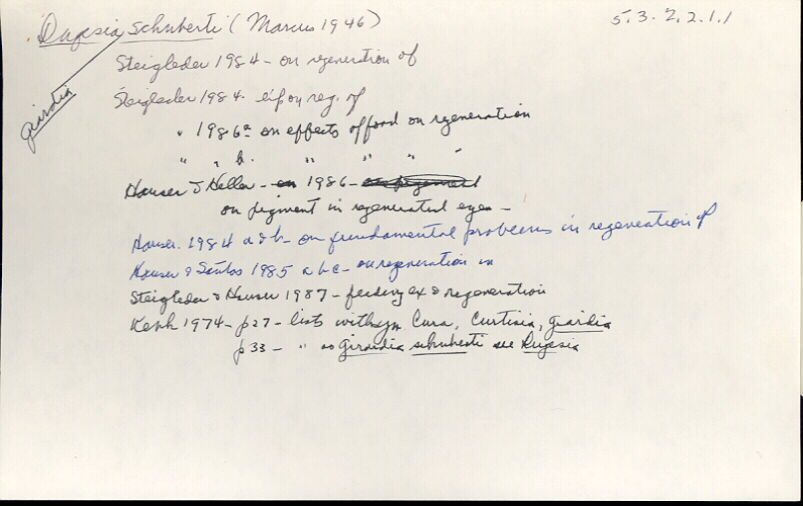 Dugesia schuberti (Marcus 1946)
5.3.2.2.1.1
girardia
Steigleder 1984 - on regeneration of
Steigleder 1984. exp on reg. of
" 1986a on effects of food on regeneration
" " b. " " " "
Hauser J Heller - on 1986 - on pigment
on pigment in regenerated eyes -
Hauser. 1984 a & b - on fundamental problems in regeneration of
Hauser & Santos 1985 a b c - on regeneration in
Steigleder & Hauser 1987 - feeding ex & regeneration
Kenk 1974 - p27 - lists with syn Cura, Curtisia, girardia
p33 - " as Girardia schuberti see Dugesia